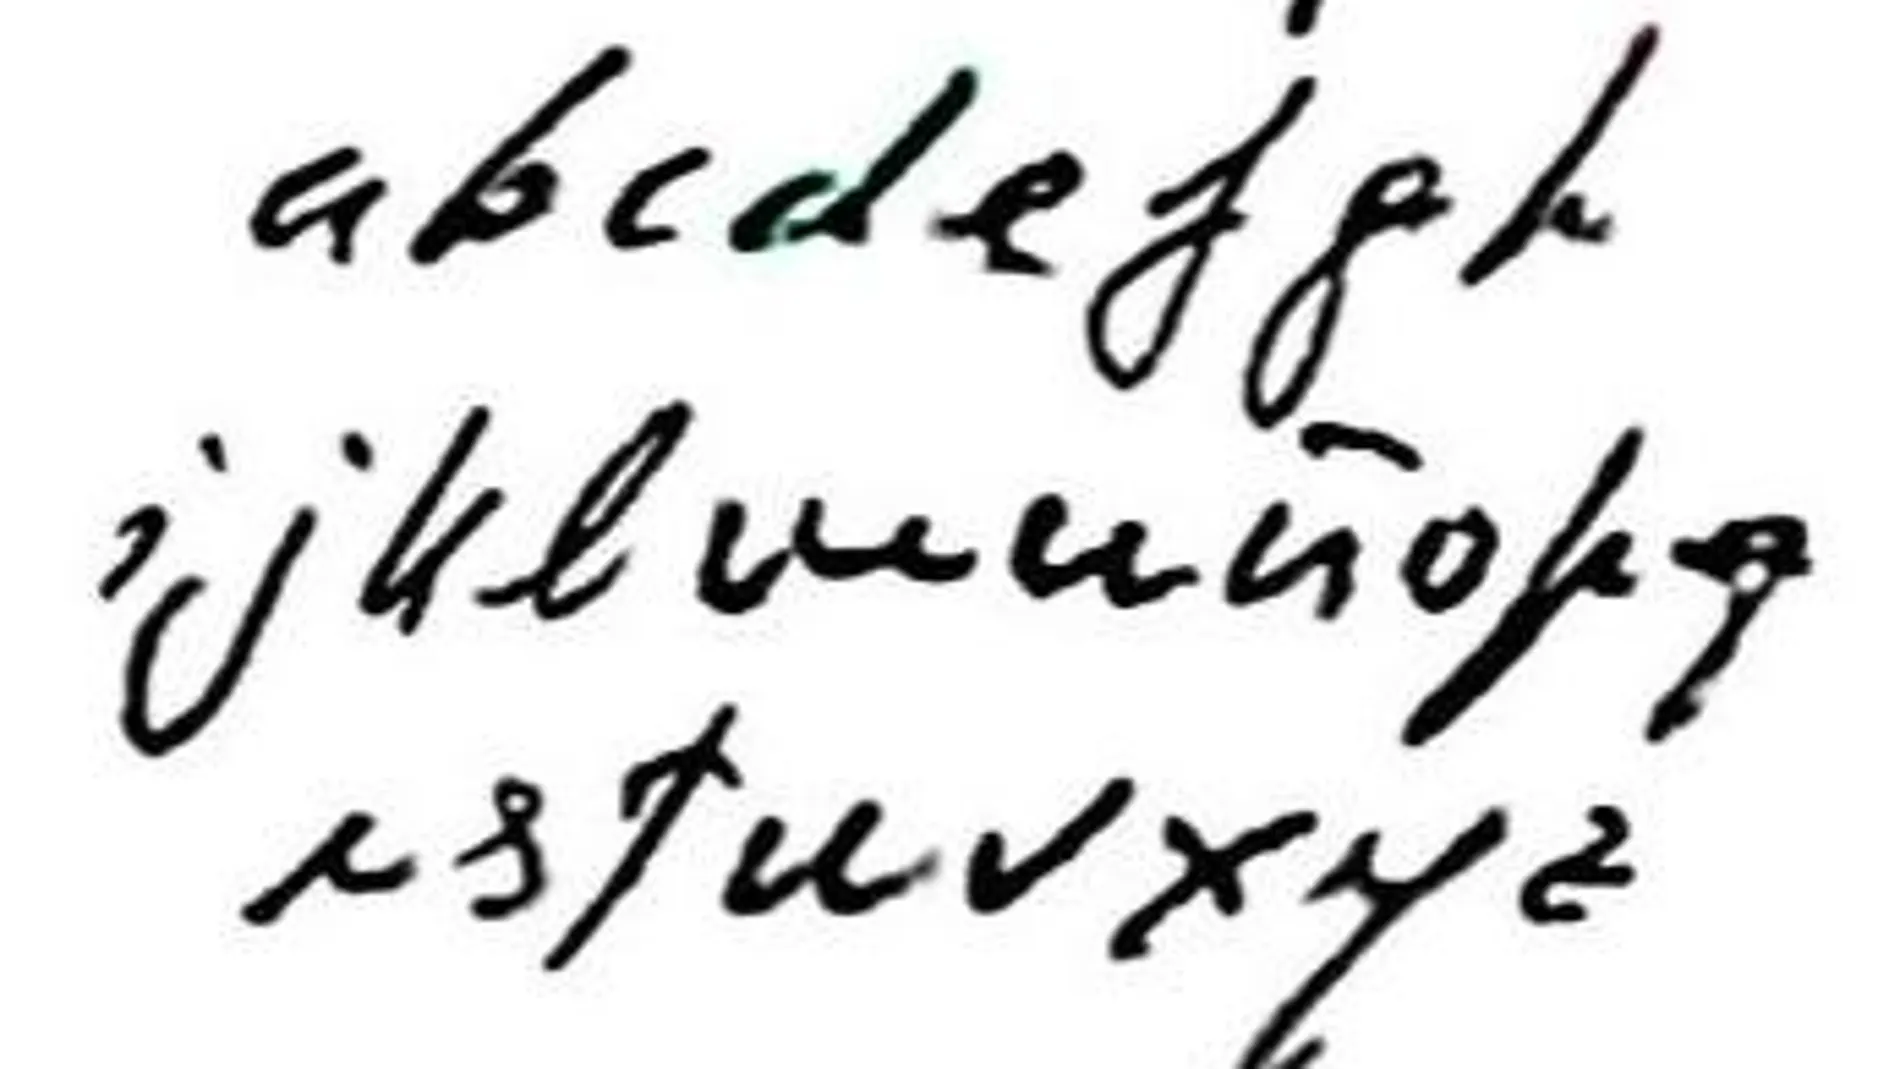 a b c d e f g h
i j k l m n ñ o p q
r s t u v x y z